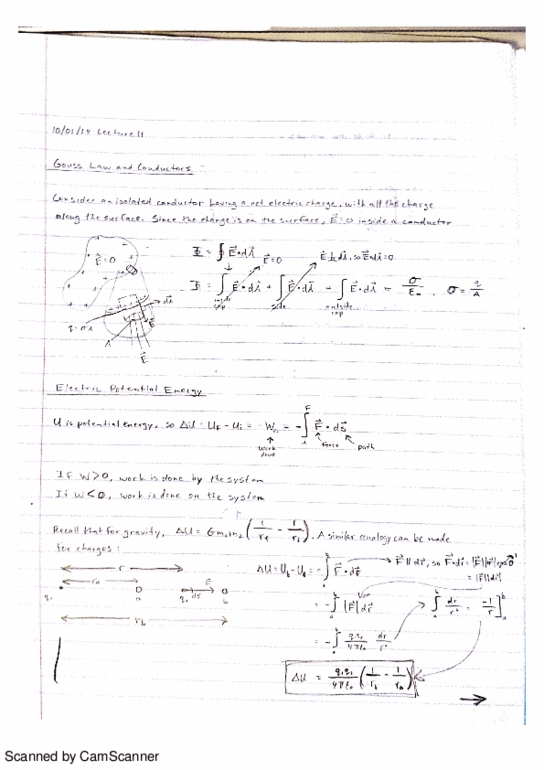 10/01/14 Lecture 11
Gauss Law and Conductors
Consider an isolated conductor having a net electric charge, with all the charge
along the surface. Since the charge is on the surface, E⃗=0 inside a conductor
E⃗=0
Φ = ∮ E⃗•dA⃗
E⃗=0
E⃗⊥dA⃗, so E⃗•dA⃗=0
Φ = ∫ E⃗•dA⃗ + ∫ E⃗•dA⃗ + ∫ E⃗•dA⃗ = σ/ε₀ , σ = q/A
inside cap
side
outside cap
dA⃗
q=σA
A
E⃗
Electric Potential Energy
U is potential energy, so ΔU = Uf - Ui = -W = -∫ F⃗ • ds⃗
work done
force
path
If W>0, work is done by the system
If W<0, work is done on the system
Recall that for gravity, ΔU = Gm₁m₂(1/rf - 1/ri). A similar analogy can be made
for charges:
r
ra
a
b
rb
ΔU = Ub - Ua = -∫ F⃗•dr⃗
= -∫ |F⃗|dr⃗
∫ dr/r² = -1/r]
ΔU = (1/rb - 1/ra)
Scanned by CamScanner